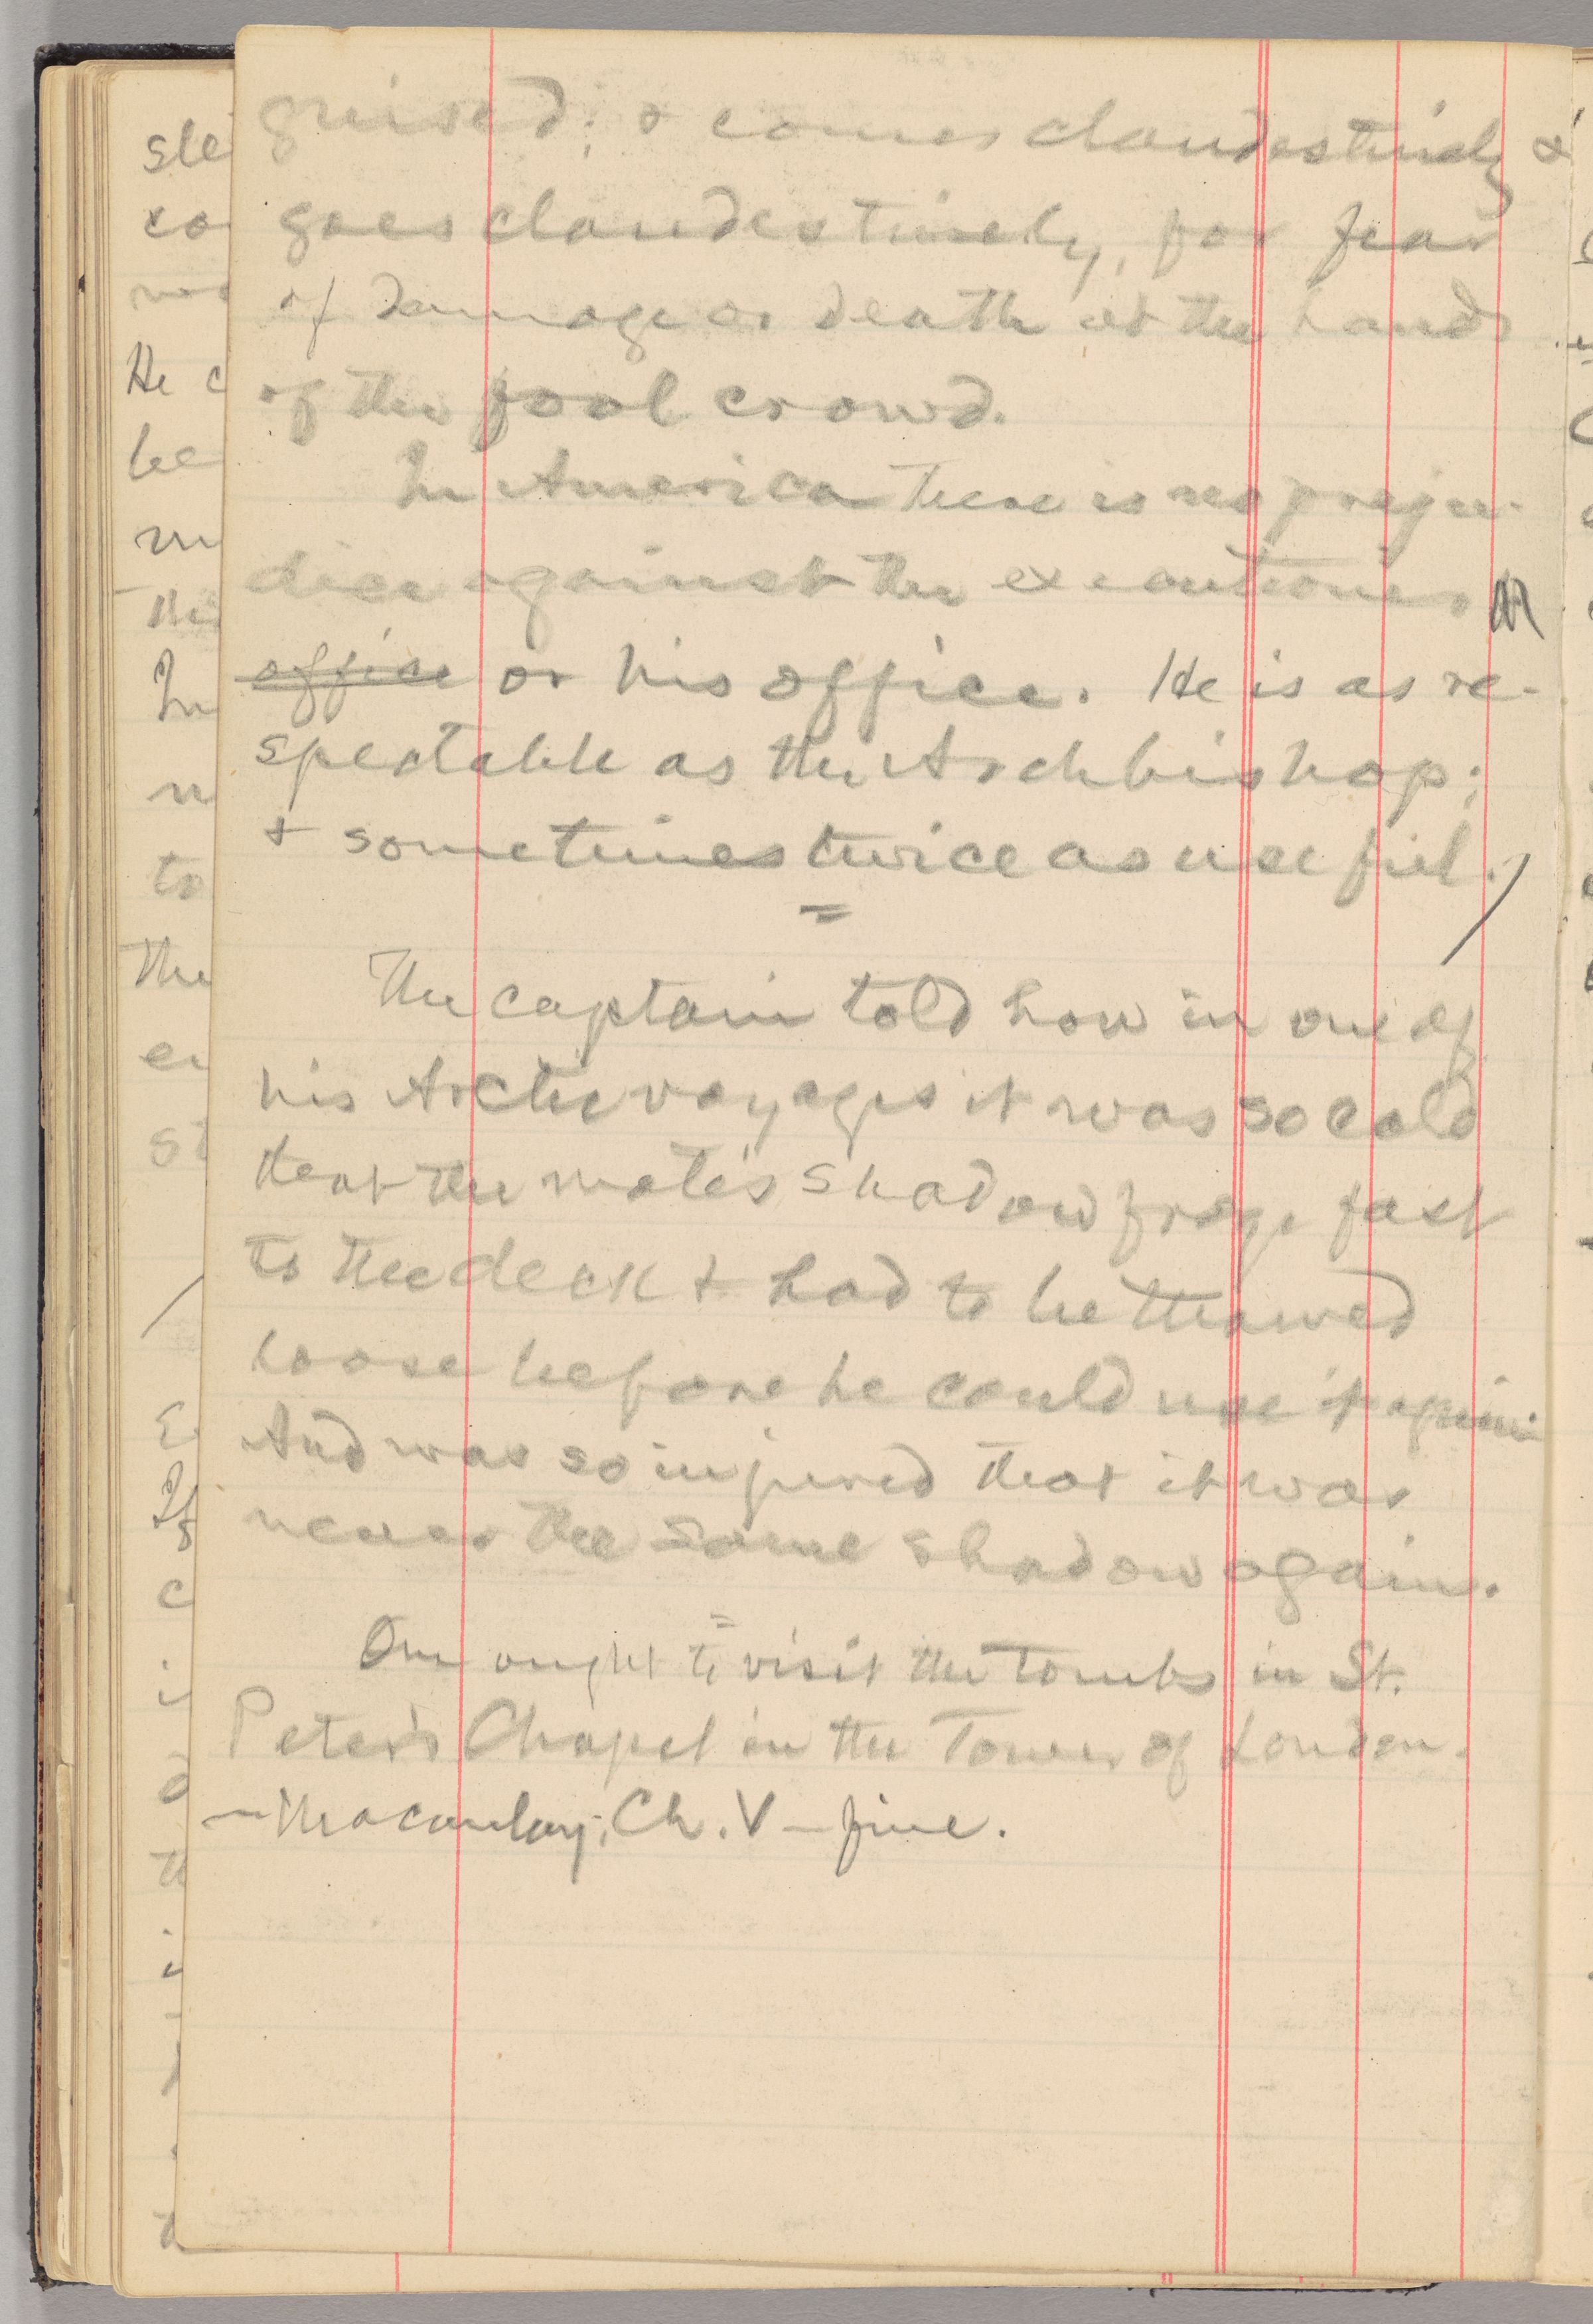 guised; & comes clandestinely &
goes clandestinely, for fear
of damage or death at the hands
of the fool crowd.
In America there is no preju-
dice against the executioner
office or his office. He is as re-
spectable as the Archbishop;
& sometimes twice as useful.
=
The captain told how in one of
his Arctic voyages it was so cold
that the mate's shadow froze fast
to the deck & had to be thawed
loose before he could use it again
And was so injured that it was
never the same shadow again.
=
One ought to visit the tombs in St.
Peter's Chapel in the Tower of London.
—Macaulay, Ch. V—fine.